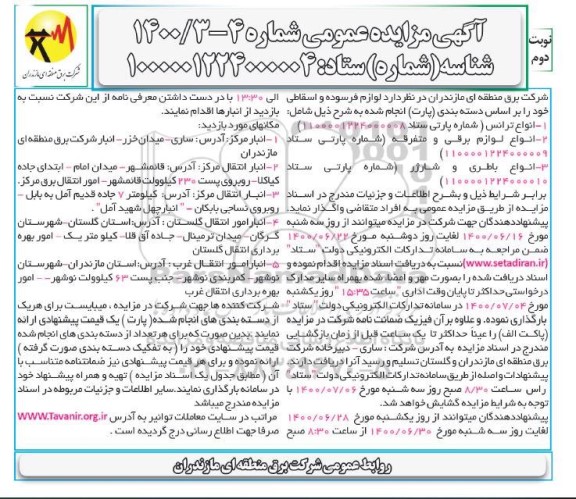 نوبت
دوم
آگهی مزایده عمومی شماره ۴-۱۴۰۰/۳
شناسه (شماره) ستاد: ۱۰۰۰۰۰۱۲۲۴۰۰۰۰۰۴
شرکت برق منطقه ای مازندران
شرکت برق منطقه ای مازندران در نظر دارد لوازم فرسوده و اسقاطی
خود را بر اساس دسته بندی (پارت) انجام شده به شرح ذیل شامل:
۱-انواع ترانس ( شماره پارتی ستاد ۱۱۰۰۰۰۱۲۲۴۰۰۰۰۰۸)
۲-انواع لوازم برقی و متفرقه (شماره پارتی ستاد
۱۱۰۰۰۰۱۲۲۴۰۰۰۰۰۹)
۳-انواع باطری و شارژر (شماره پارتی ستاد
۱۱۰۰۰۰۱۲۲۴۰۰۰۰۱۰)
برابر شرایط ذیل و بشرح اطلاعات و جزئیات مندرج در اسناد
مزایده از طریق مزایده عمومی به افراد متقاضی واگذار نماید.
پیشنهاددهندگان جهت شرکت در مزایده میتوانند از روز سه شنبه
مورخ ۱۴۰۰/۰۶/۱۶ لغایت روز دوشنبه مورخ ۱۴۰۰/۰۶/۲۲
ضمن مراجعه به سامانه تدارکات الکترونیکی دولت "ستاد"
(www.setadiran.ir) نسبت به دریافت اسناد مزایده اقدام نموده و
اسناد دریافت شده را بصورت مهر و امضا شده بهمراه سایر مدارک
درخواستی حداکثر تا پایان وقت اداری (ساعت ۱۵:۳۵) روز یکشنبه
مورخ ۱۴۰۰/۰۷/۰۴ در سامانه تدارکات الکترونیکی دولت "ستاد"
بارگذاری نموده. و علاوه بر آن فیزیک ضمانت نامه شرکت در مزایده
(پاکت الف) را عیناً حداکثر تا یک ساعت قبل از زمان بازگشایی
مندرج در اسناد مزایده به آدرس شرکت: ساری - دبیرخانه شرکت
برق منطقه ای مازندران و گلستان تسلیم و رسید آنرا دریافت دارند.
پیشنهادات واصله از طریق سامانه تدارکات الکترونیکی دولت "ستاد"
راس ساعت ۸/۳۰ صبح روز سه شنبه مورخ ۱۴۰۰/۰۷/۰۶ با
توجه به شرایط مزایده گشایش خواهد شد.
پیشنهاددهندگان میتوانند از روز یکشنبه مورخ ۱۴۰۰/۰۶/۲۸
لغایت روز سه شنبه مورخ ۱۴۰۰/۰۶/۳۰ از ساعت ۸:۳۰ صبح
الی ۱۳:۳۰ با در دست داشتن معرفی نامه از این شرکت نسبت به
بازدید از انبارها اقدام نمایند.
مکانهای مورد بازدید:
۱-انبار مرکز: آدرس: ساری- میدان خزر- انبار شرکت برق منطقه ای
مازندران
۲-انبار انتقال مرکز: آدرس: قائمشهر- میدان امام - ابتدای جاده
کیاکلا- روبروی پست ۲۳۰ کیلوولت قائمشهر- امور انتقال برق مرکز.
۳-انبار انتقال مرکز: آدرس: کیلومتر ۷ جاده قدیم آمل به بابل -
روبروی نساجی بابکان - "انبار چهل شهید آمل".
۴-انبار امور انتقال گلستان : آدرس: استان گلستان-شهرستان
گرگان- میدان ترمینال- جاده آق قلا- کیلو متر یک - امور بهره
برداری انتقال گلستان
۵-انبار امور انتقال غرب : آدرس: استان مازندران-شهرستان
نوشهر- کمربندی نوشهر- جنب پست ۶۳ کیلوولت نوشهر - امور
بهره برداری انتقال غرب
شرکت کننده ها جهت شرکت در مزایده ، میبایست برای هریک
از دسته بندی های انجام شده( پارت ) یک قیمت پیشنهادی ارائه
نمایند. بدین صورت که برای هر تعداد از دسته بندی های انجام شده
قیمت پیشنهادی خود را (به تفکیک دسته بندی صورت گرفته )
ارائه نموده و برای هر قیمت پیشنهادی نیز ضمانتنامه متناسب با
آن ( مطابق جدول یک اسناد مزایده ) تهیه و همراه پیشنهاد خود
در سامانه بارگذاری نمایند.سایر اطلاعات و جزئیات مربوطه در اسناد
مزایده مندرج میباشد
مراتب در سایت معاملات توانیر به آدرس WWW.Tavanir.org.ir
صرفا جهت اطلاع رسانی درج گردیده است .
روابط عمومی شرکت برق منطقه ای مازندران